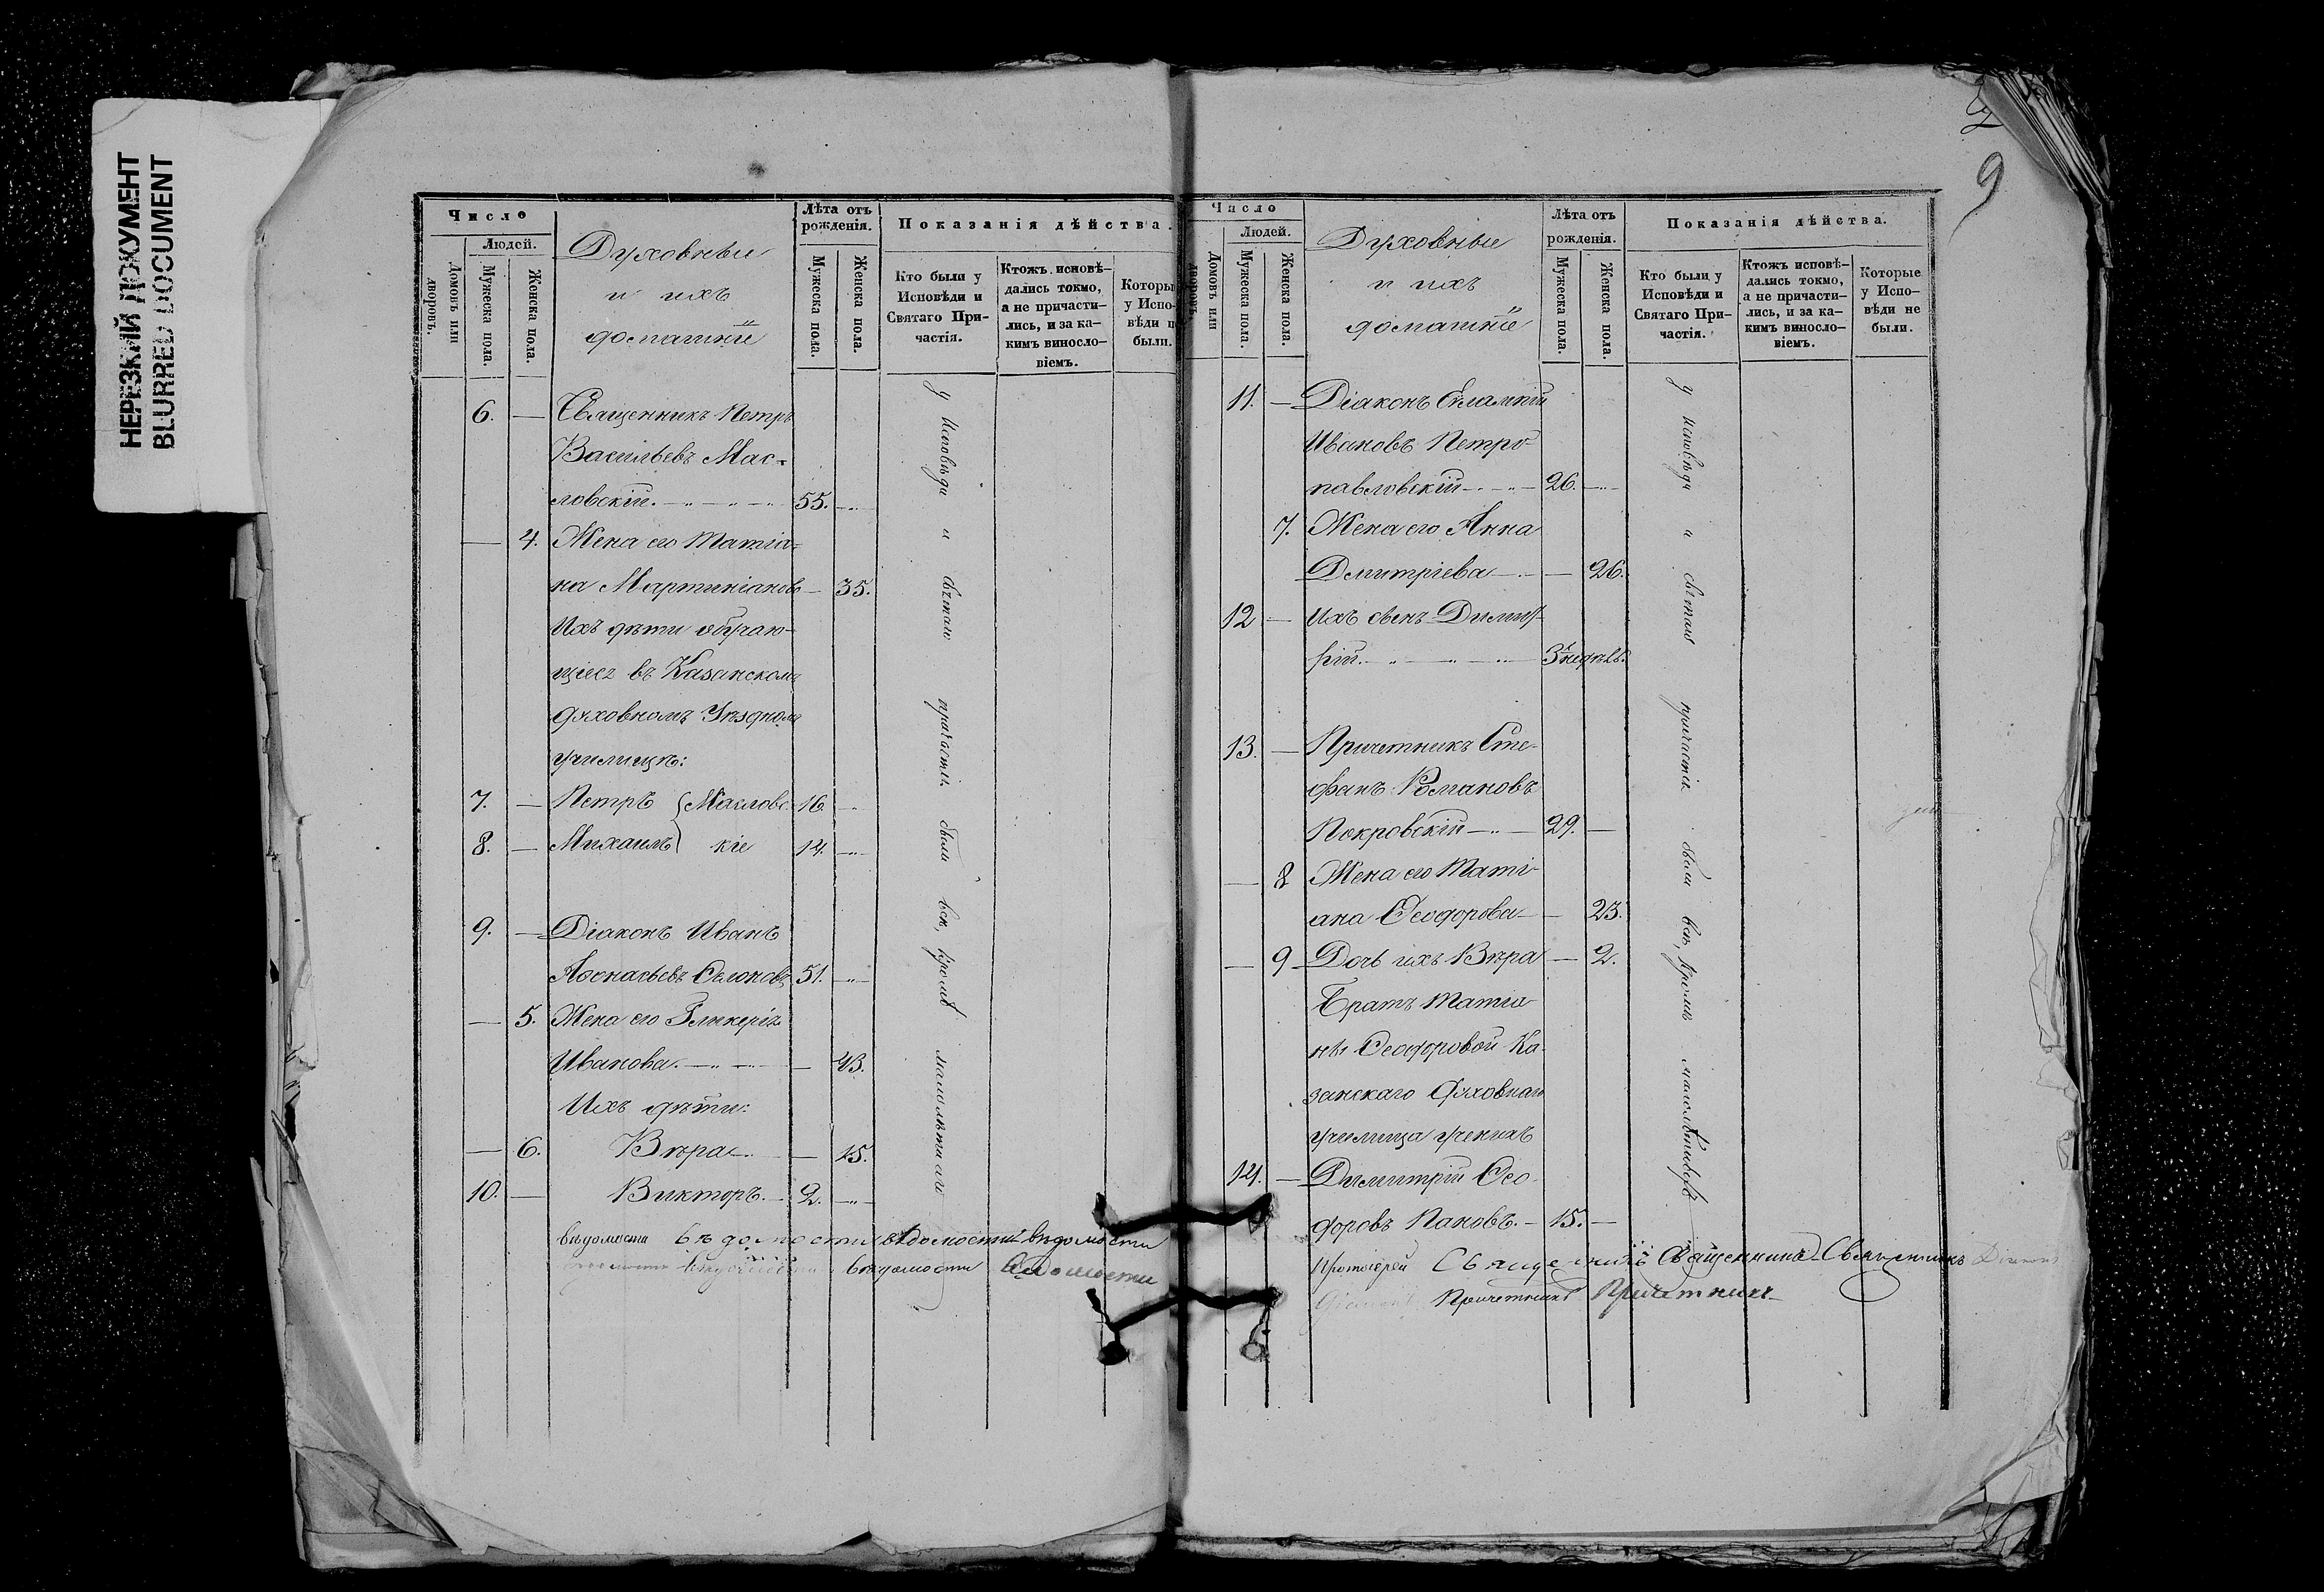 НЕРЕЗКИЙ ДОКУМЕНТ
BLURRED DOCUMENT
Число
Людей.
Домовъ или дворовъ.
Мужеска пола.
Женска пола.
Духовные
и ихъ
домашніе
Лѣта отъ рожденія.
Мужеска пола.
Женска пола.
Показанія дѣйства.
Кто были у Исповѣди и Святаго Причастія.
Ктожъ исповѣдались токмо, а не причастились, и за какимъ винословіемъ.
Которы у Испо- вѣди н были.
6. — Священникъ Петръ
Васильевъ Мас-
ловскій. 55.
— 4. Жена его Татіа-
на Мартиніанов — 35.
Ихъ дѣти обучаю-
щіеся въ Казанскомъ
духовномъ Уѣздномъ
училищѣ:
7. — Петръ Масловс 16.
8. — Михаилъ кіе 14.
9. — Діаконъ Иванъ
Аѳонасьевъ 51.
— 5. Жена его Гликерія
Иванова. — 43.
Ихъ дѣти:
— 6. Вѣра. — 15.
10. — Викторъ. 2.
у исповѣди и святаго причастія были всѣ, кромѣ малолѣтняго
вѣдомости вѣдомости вѣдомости вѣдомости
вѣдомости вѣдомости
9
Число
Людей.
Домовъ или дворовъ.
Мужеска пола.
Женска пола.
Духовные
и ихъ
домашніе
Лѣта отъ рожденія.
Мужеска пола.
Женска пола.
Показанія дѣйства.
Кто были у Исповѣди и Святаго Причастія.
Ктожъ исповѣдались токмо, а не причастились, и за какимъ винословіемъ.
Которые у Исповѣди не были.
11. — Діаконъ Евлампій
Ивановъ Петро-
павловскій 26.
7. Жена его Анна
Дмитріева — 26.
12 — Ихъ сынъ Димит-
рій. 3 недѣль.
13. — Причетникъ Сте-
фанъ Романовъ
Покровскій 29.
— 8 Жена его Таті-
ана Ѳеодорова — 23.
— 9 Дочь ихъ Вѣра — 2.
Братъ Татіа-
ны Ѳеодоровой Ка-
занскаго духовнаго
училища ученикъ
14. — Димитрій Ѳео-
доровъ Пановъ. 15.
у исповѣди и святаго причастія были всѣ, кромѣ малолѣтнихъ
Протоіерей Священникъ Священника Священникъ Діаконъ
Діаконъ Причетникъ Причетникъ